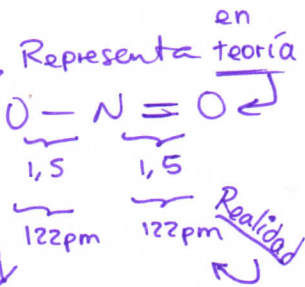 en
Representa teoría
O — N = O
1,5 1,5
122pm 122pm
Realidad